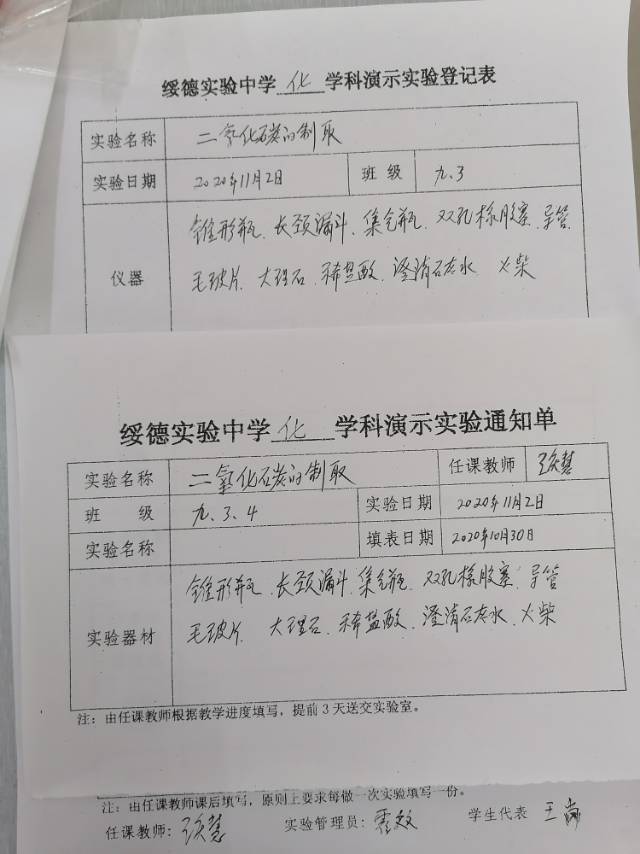 绥德实验中学 化 学科演示实验登记表
实验名称 二氧化碳的制取
实验日期 2020年11月2日 班 级 九.3
仪器 锥形瓶、长颈漏斗、集气瓶、双孔橡胶塞、导管
毛玻片、大理石、稀盐酸、澄清石灰水、火柴
绥德实验中学 化 学科演示实验通知单
实验名称 二氧化碳的制取 任课教师
班 级 九.3.4 实验日期 2020年11月2日
实验名称 填表日期 2020年10月30日
实验器材 锥形瓶、长颈漏斗、集气瓶、双孔橡胶塞、导管
毛玻片、大理石、稀盐酸、澄清石灰水、火柴
注：由任课教师根据教学进度填写，提前3天送交实验室。
注：由任课教师课后填写，原则上要求每做一次实验填写一份。
任课教师： 实验管理员： 学生代表 王